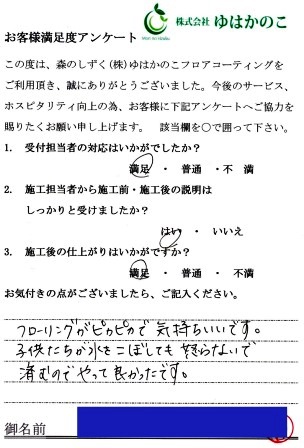 株式会社 ゆはかのこ
お客様満足度アンケート
この度は、森のしずく(株)ゆはかのこフロアコーティングを
ご利用頂き、誠にありがとうございました。今後のサービス、
ホスピタリティ向上の為、お客様に下記アンケートへご協力を
賜りたくお願い申し上げます。 該当欄を○で囲って下さい。
1. 受付担当者の対応はいかがでしたか?
満足 ・ 普通 ・不 満
2. 施工担当者から施工前・施工後の説明は
しっかりと受けましたか?
はい ・ いいえ
3. 施工後の仕上がりはいかがですか?
満足 ・ 普通 ・ 不満
お気付きの点がございましたら、ご記入ください。
フローリングがピカピカで気持ちいいです。
子供たちが水をこぼしても怒らないで
済むのでやって良かったです。
御名前